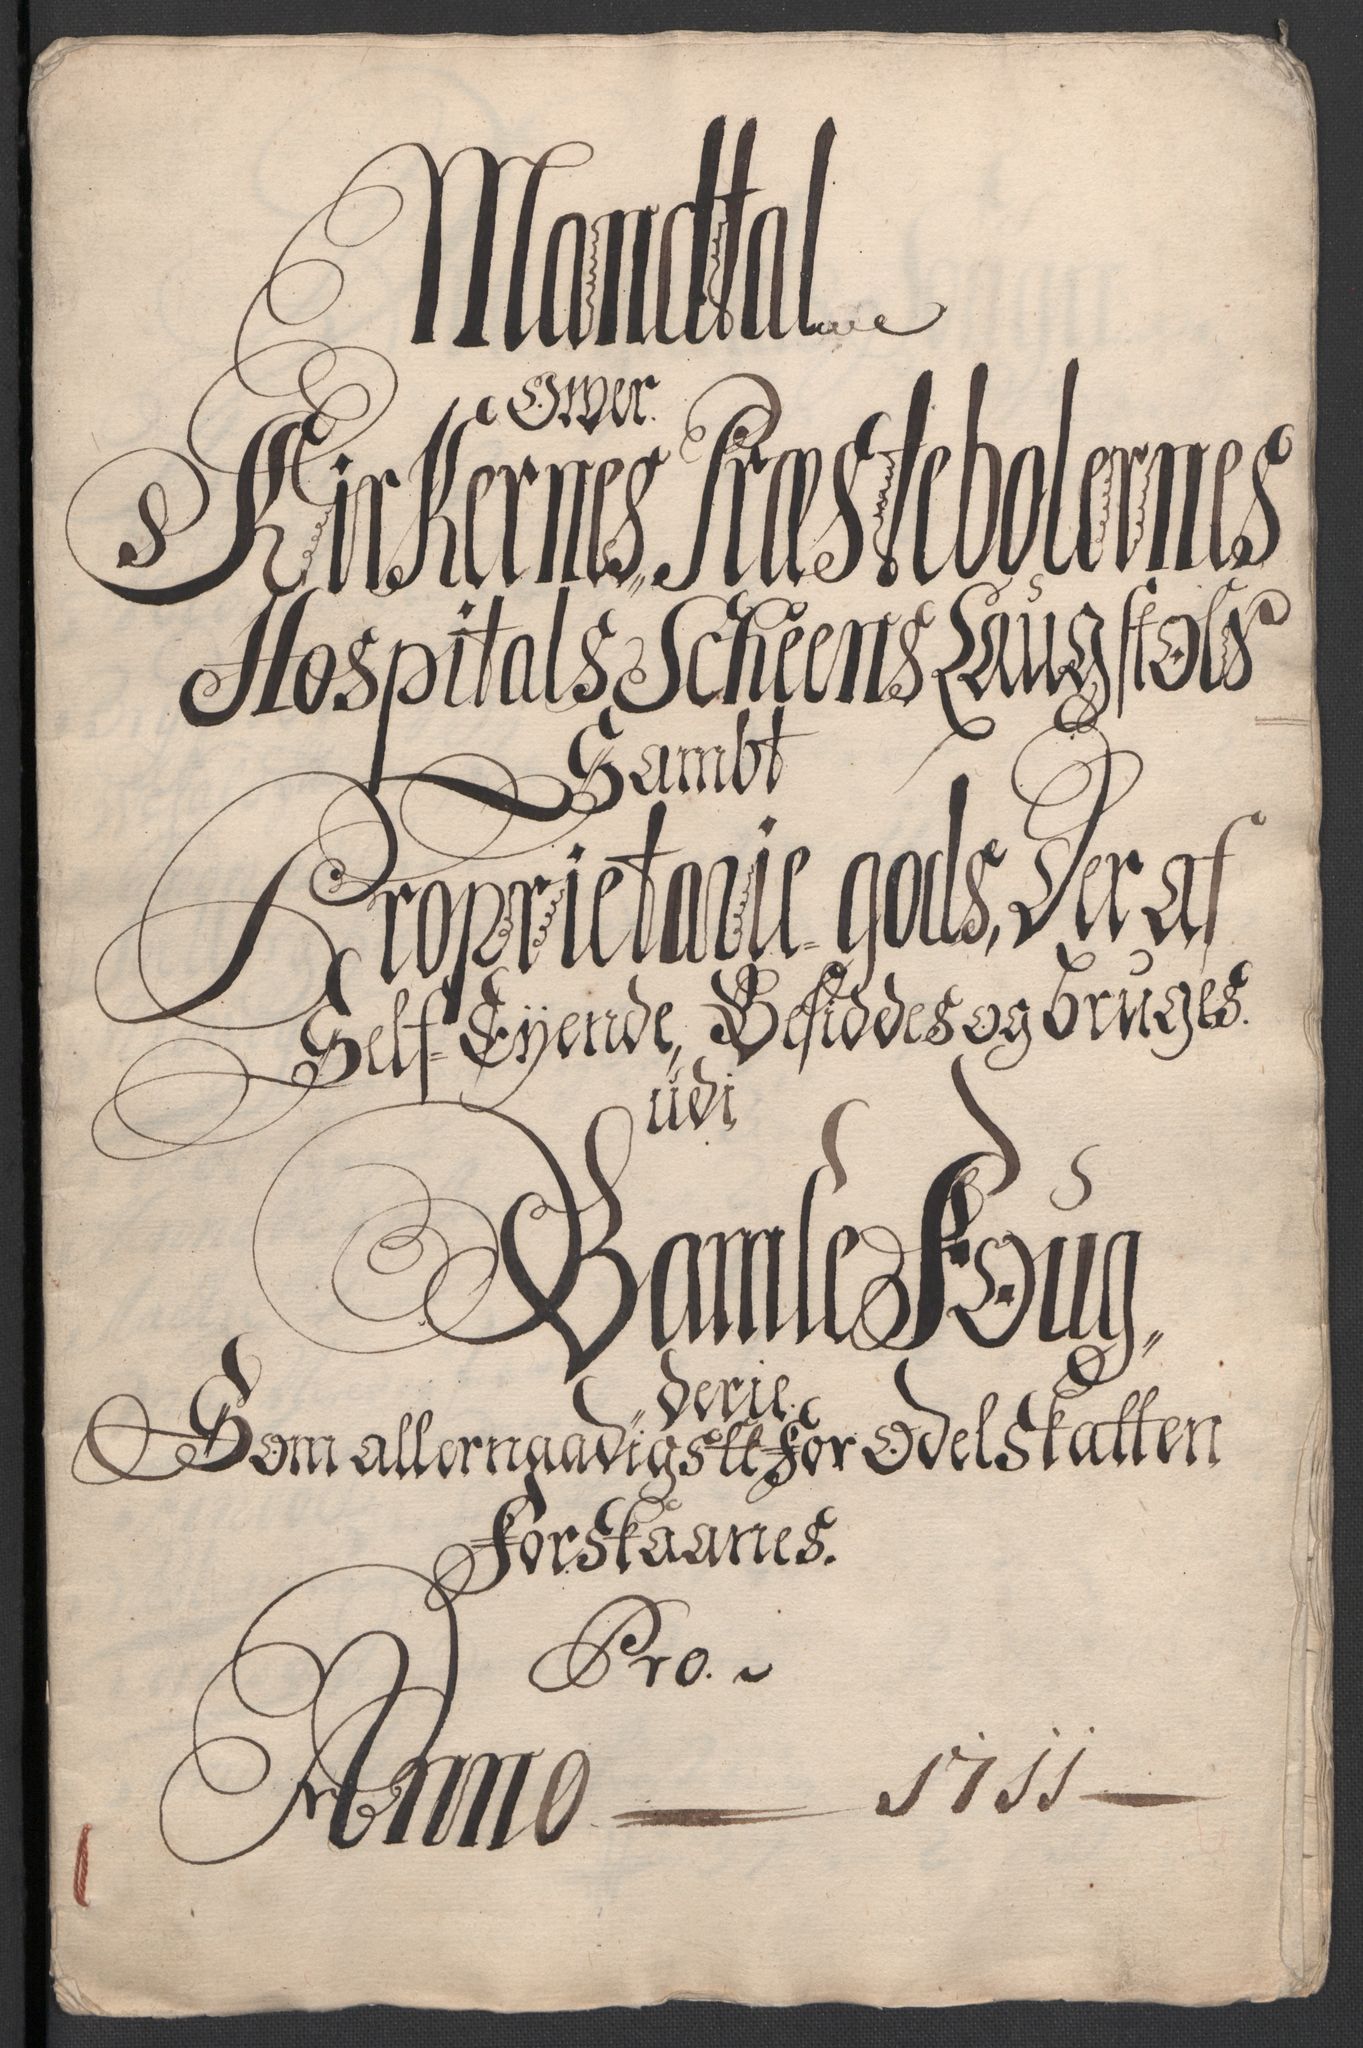 Mandtal
Over
Kirkernes, Præstebolernes
Hospitals Scheens Laugstols
Sambt
Proprietarie-gods, Der af
Self-Eyende, Besiddes og bruges
udi
Bamle Foug,,
derie.
Som allernaadigst for Odelskatten
forskaanes.
Pro.
Anno 1711